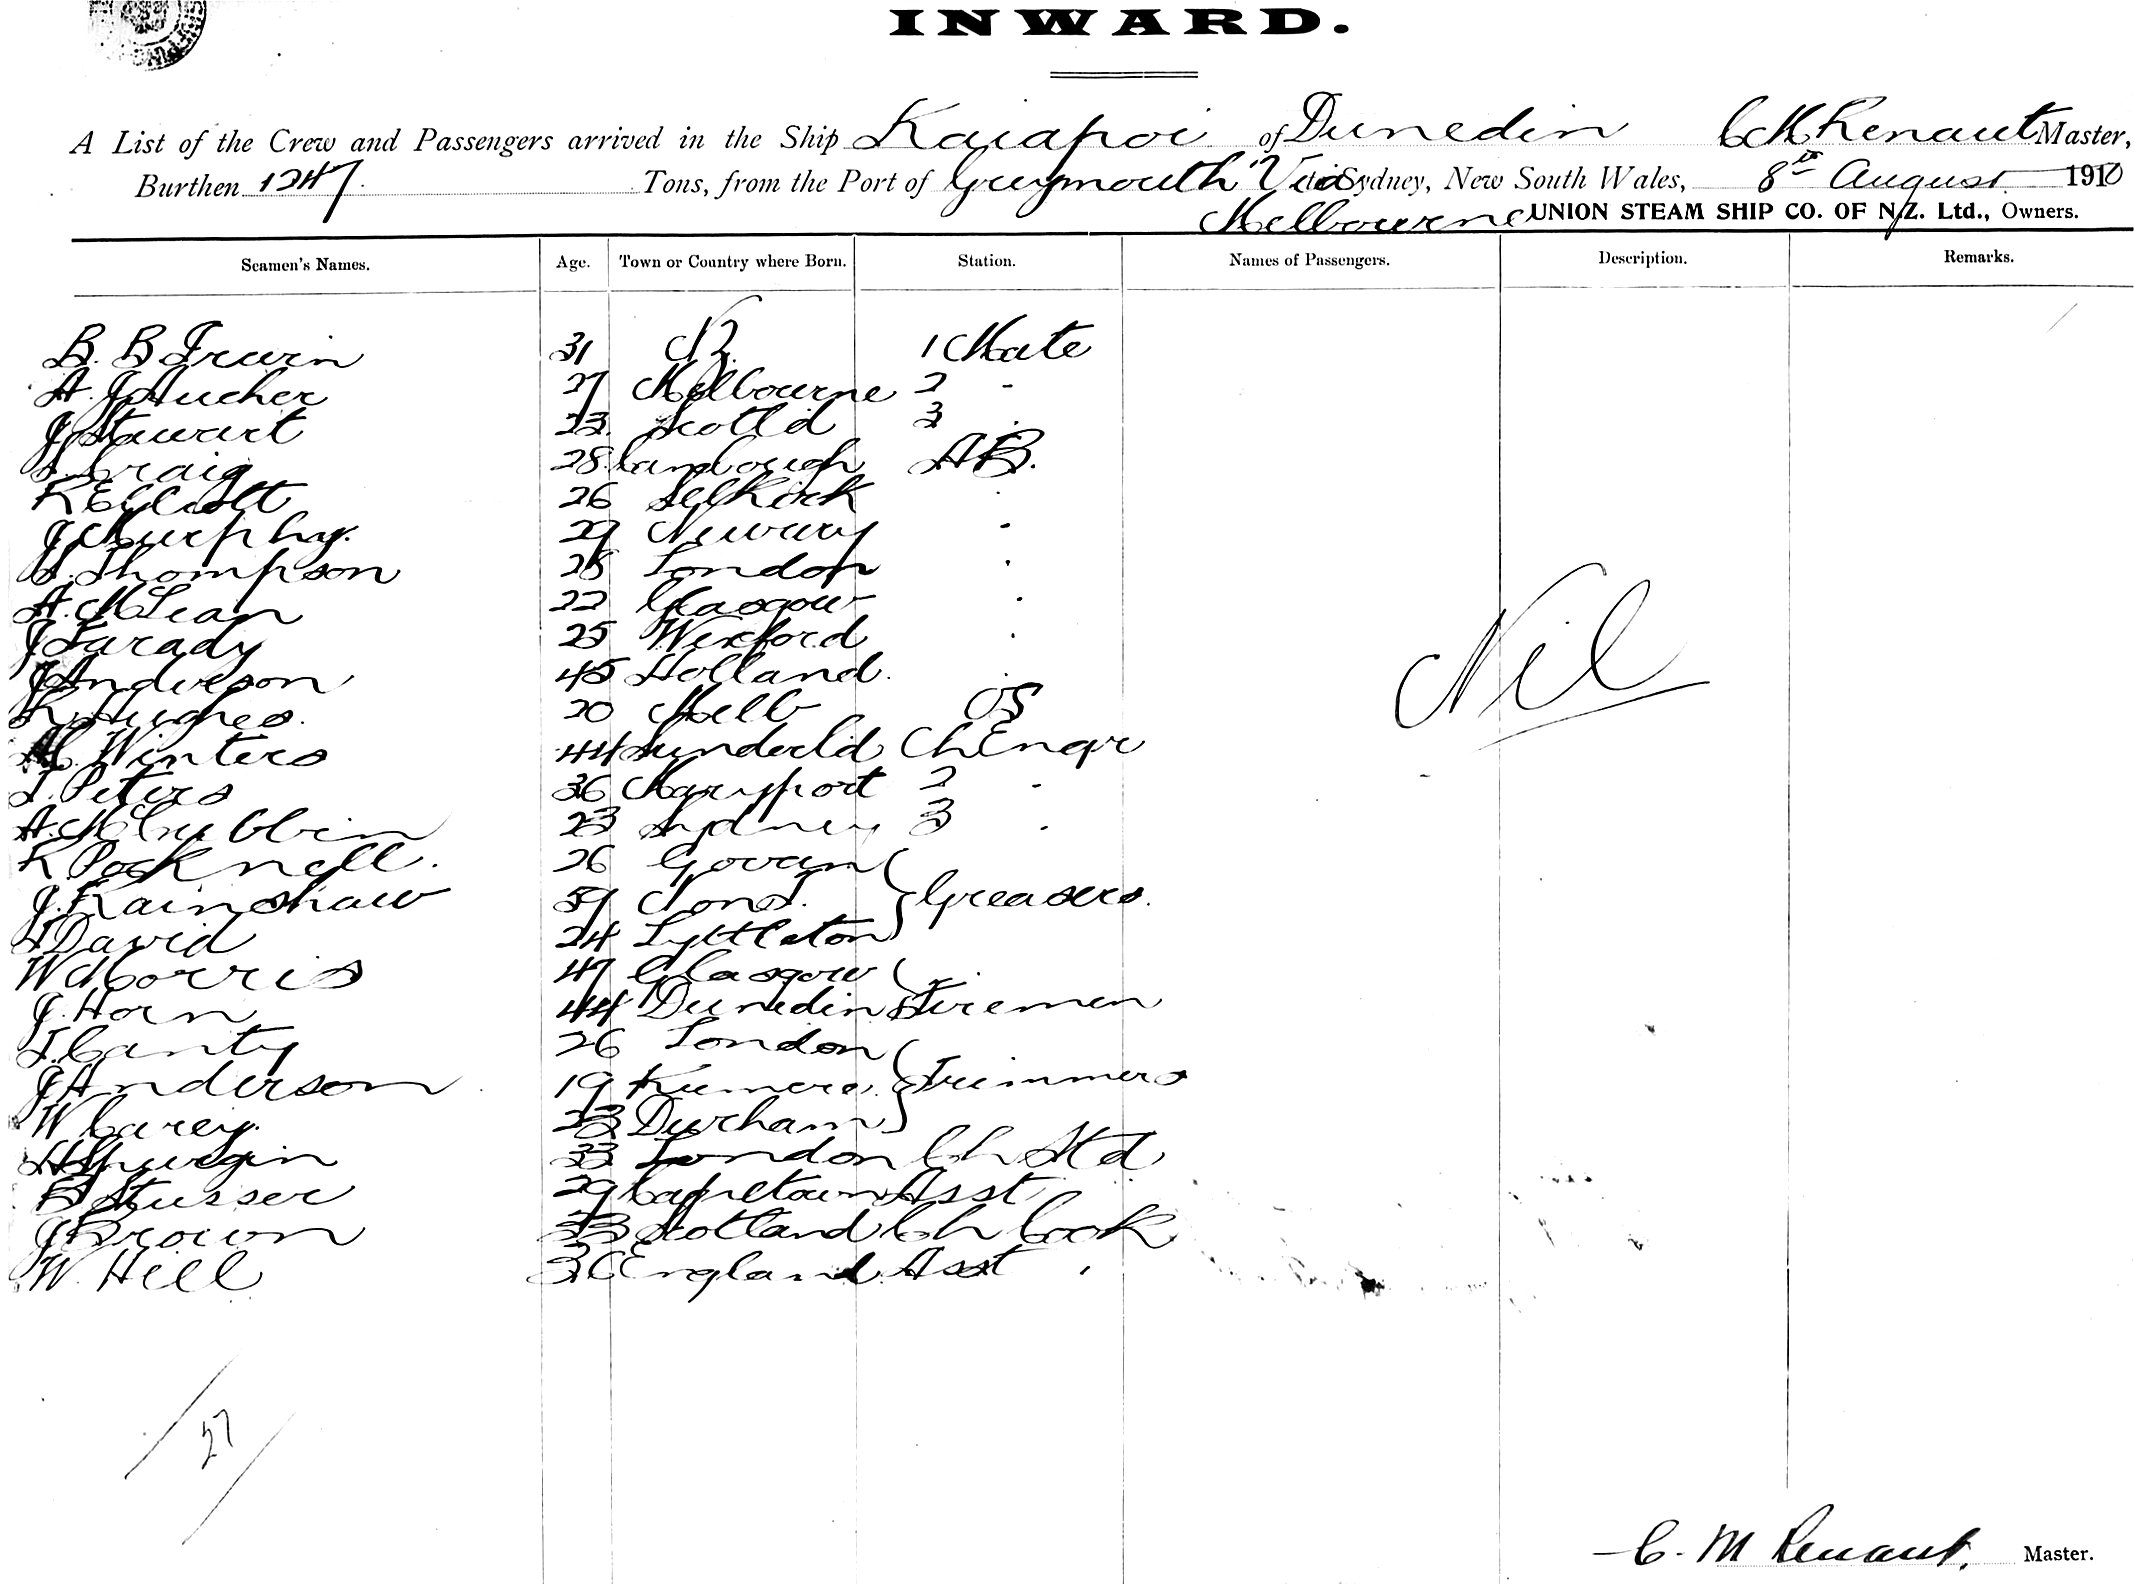 INWARD.
A List of the Crew and Passengers arrived in the Ship Kaiapoi of Dunedin C M Renaut Master,
Burthen 1247 Tons, from the Port of Greymouth Via to Sydney, New South Wales, 8th August 1910
Melbourne UNION STEAM SHIP CO. OF N.Z. Ltd., Owners.
Seamen's Names. Age. Town or Country where Born. Station. Names of Passengers. Description. Remarks.
B. B Irwin 31 NZ. 1 Mate
A. J Aucher 27 Melbourne 2 -
J Stewart 23 Scotld 3
Craig 28 AB.
R Elliott 26 Selkirk
J Murphy. 29 Newary -
Thompson 28 London
A. McLean 22 Glasgow
J Farady 25 Wexford
J Anderson 45 Holland.
R Hughes. 20 Melb OS
Winters 44 Sunderld Ch Engr
J. Peters 36 Maryport 2 -
A. McCubbin 23 Sydney 3
R Pocknell. 26 Govan
J. Rainshaw 59 Greasers.
David 24 Lyttleton
W Morris 47 Glasgow
J. Horn 44 Dunedin Firemen
J. Canty 26 London
J Anderson 19 Kumera Trimmers
W Carey. 23 Durham
33 London Ch Std
B Stusser 29 Capetown Asst
J Brown 33 Scotland Ch Cook
W. Hill 36 England Asst
Nil
27
C. M Renaut. Master.